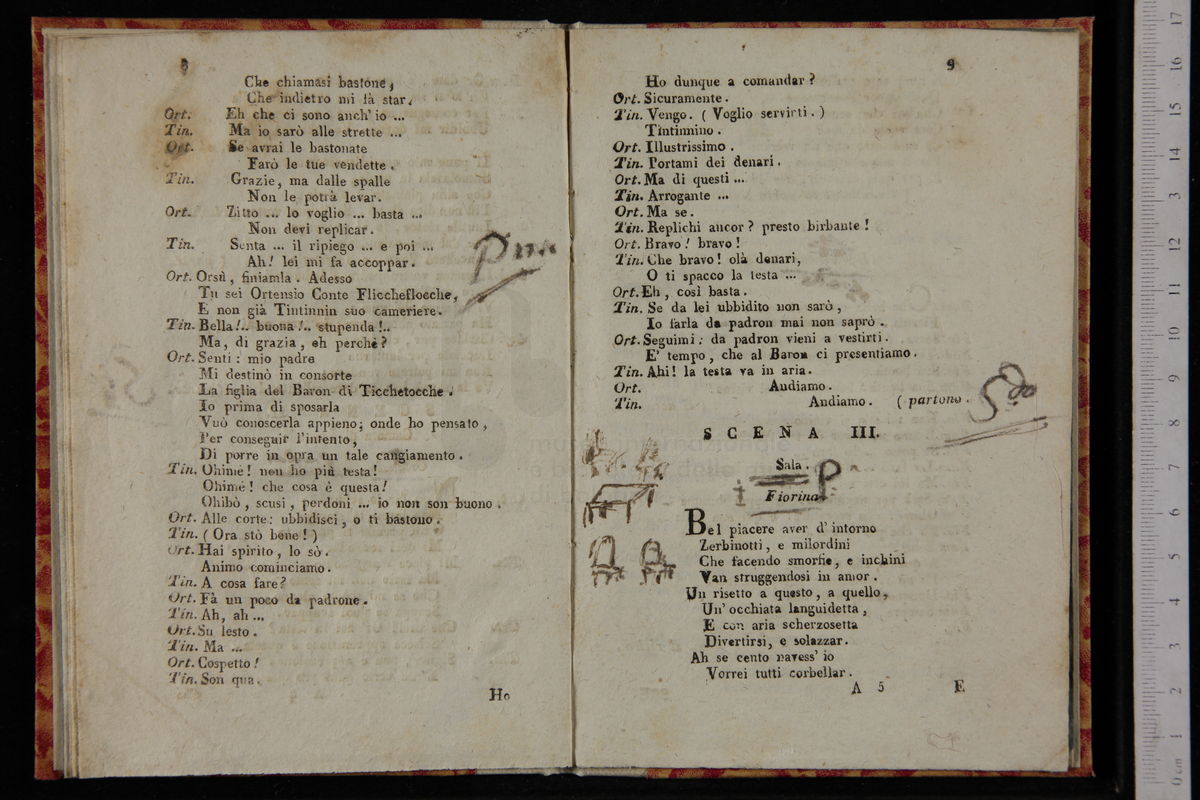 8
Che chiamasi bastone,
Che indietro mi fà star.
Ort. Eh che ci sono anch' io ...
Tin. Ma io sarò alle strette ...
Ort. Se avrai le bastonate
Farò le tue vendette.
Tin. Grazie, ma dalle spalle
Non le potrà levar.
Ort. Zitto ... lo voglio ... basta ...
Non devi replicar.
Tin. Senta ... il ripiego ... e poi ...
Ah! lei mi fa accoppar.
Ort. Orsù, finiamla. Adesso
Tu sei Ortensio Conte Fliccheflocche,
E non già Tintinnin suo cameriere.
Tin. Bella!.. buona!.. stupenda!..
Ma, di grazia, eh perchè?
Ort. Senti: mio padre
Mi destinò in consorte
La figlia del Baron di Ticchetocche.
Io prima di sposarla
Vuò conoscerla appieno; onde ho pensato,
Per conseguir l'intento,
Di porre in opra un tale cangiamento.
Tin. Ohimè! non ho più testa!
Ohimè! che cosa è questa!
Ohibò, scusi, perdoni ... io non son buono.
Ort. Alle corte: ubbidisci, o ti bastono.
Tin. (Ora stò bene!)
Ort. Hai spirito, lo sò.
Animo cominciamo.
Tin. A cosa fare?
Ort. Fà un poco da padrone.
Tin. Ah, ah ...
Ort. Su lesto.
Tin. Ma ...
Ort. Cospetto!
Tin. Son qua.
Ho
9
Ho dunque a comandar?
Ort. Sicuramente.
Tin. Vengo. (Voglio servirti.)
Tintinnino.
Ort. Illustrissimo.
Tin. Portami dei denari.
Ort. Ma di questi ...
Tin. Arrogante ...
Ort. Ma se.
Tin. Replichi ancor? presto birbante!
Ort. Bravo! bravo!
Tin. Che bravo! olà denari,
O ti spacco la testa ...
Ort. Eh, così basta.
Tin. Se da lei ubbidito non sarò,
Io farla da padron mai non saprò.
Ort. Seguimi: da padron vieni a vestirti.
E' tempo, che al Baron ci presentiamo.
Tin. Ahi! la testa va in aria.
Ort. Andiamo.
Tin. Andiamo. (partono.
SCENA III.
Sala.
P
Fiorina
Bel piacere aver d' intorno
Zerbinotti, e milordini
Che facendo smorfie, e inchini
Van struggendosi in amor.
Un risetto a questo, a quello,
Un' occhiata languidetta,
E con aria scherzosetta
Divertirsi, e solazzar.
Ah se cento navess' io
Vorrei tutti corbellar.
A 5 E
17
16
15
14
13
12
11
10
9
8
7
6
5
4
3
2
1
0 cm